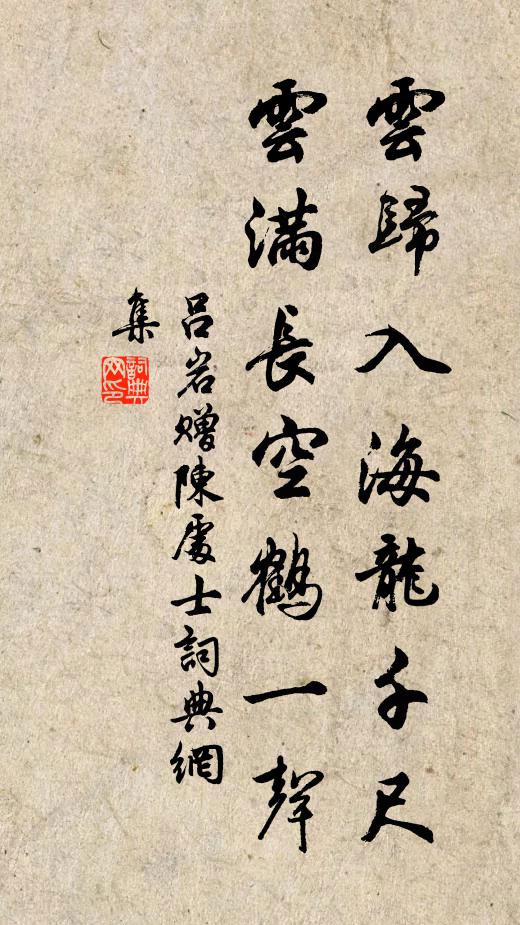 雲歸入海龍千尺
雲滿長空鶴一聲
呂岩贈陳處士詞典網
集
詞典
网印